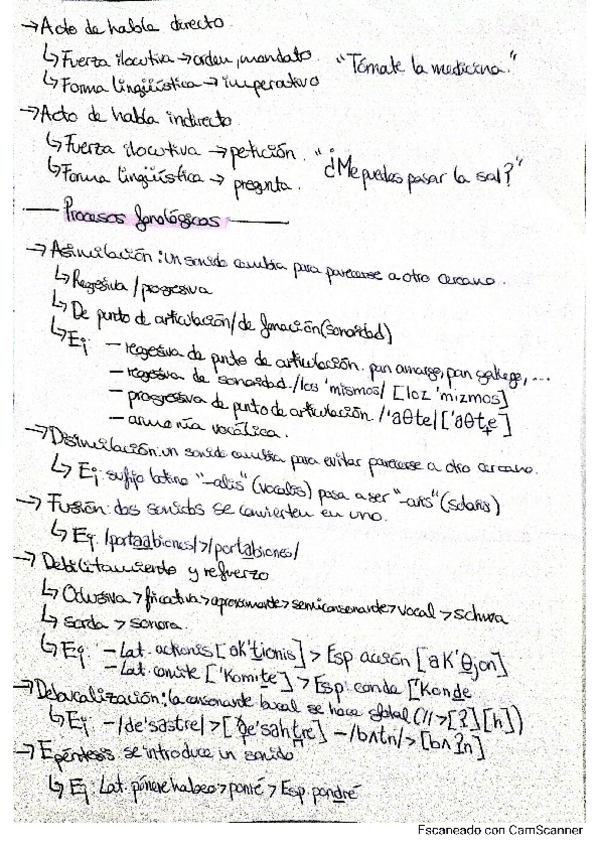 →Acto de habla directo
↳Fuerza ilocutiva→orden, mandato. "Tómate la medicina."
↳Forma lingüística→imperativo
→Acto de habla indirecto
↳Fuerza ilocutiva→petición. "¿Me puedes pasar la sal?"
↳Forma lingüística→pregunta.
Procesos fonológicos
→Asimilación: un sonido cambia para parecerse a otro cercano.
↳Regresiva/progresiva
↳De punto de articulación/de fonación (sonoridad)
↳Ej - regresiva de punto de articulación. pan amargo, pan gallego, ...
- regresiva de sonoridad. /los 'mismos/ [loz 'mizmos]
- progresiva de punto de articulación /'aθte/ ['aθt̟e]
- armonía vocálica.
→Disimilación: un sonido cambia para evitar parecerse a otro cercano.
↳Ej: sufijo latino "-alis" (vocalis) pasa a ser "-aris" (solaris)
→Fusión: dos sonidos se convierten en uno.
↳Ej: /portaabiones/>/portabiones/
→Debilitamiento y refuerzo
↳Oclusiva>fricativa>aproximante>semiconsonante>vocal>schwa
↳sorda>sonora.
↳Ej: - Lat. actionis [ak'tionis] > Esp acción [ak'θjon]
- Lat. comite ['Komite] > Esp conde ['Konde
→Debucalización: la consonante bucal se hace glotal (//>[ʔ][h])
↳Ej - /de'sastre/>[de'sahtre] - /bʌtn/>[bʌʔn]
→Epéntesis se introduce un sonido
↳Ej: Lat. pónere habeo>ponré>Esp. pondré
Escaneado con CamScanner